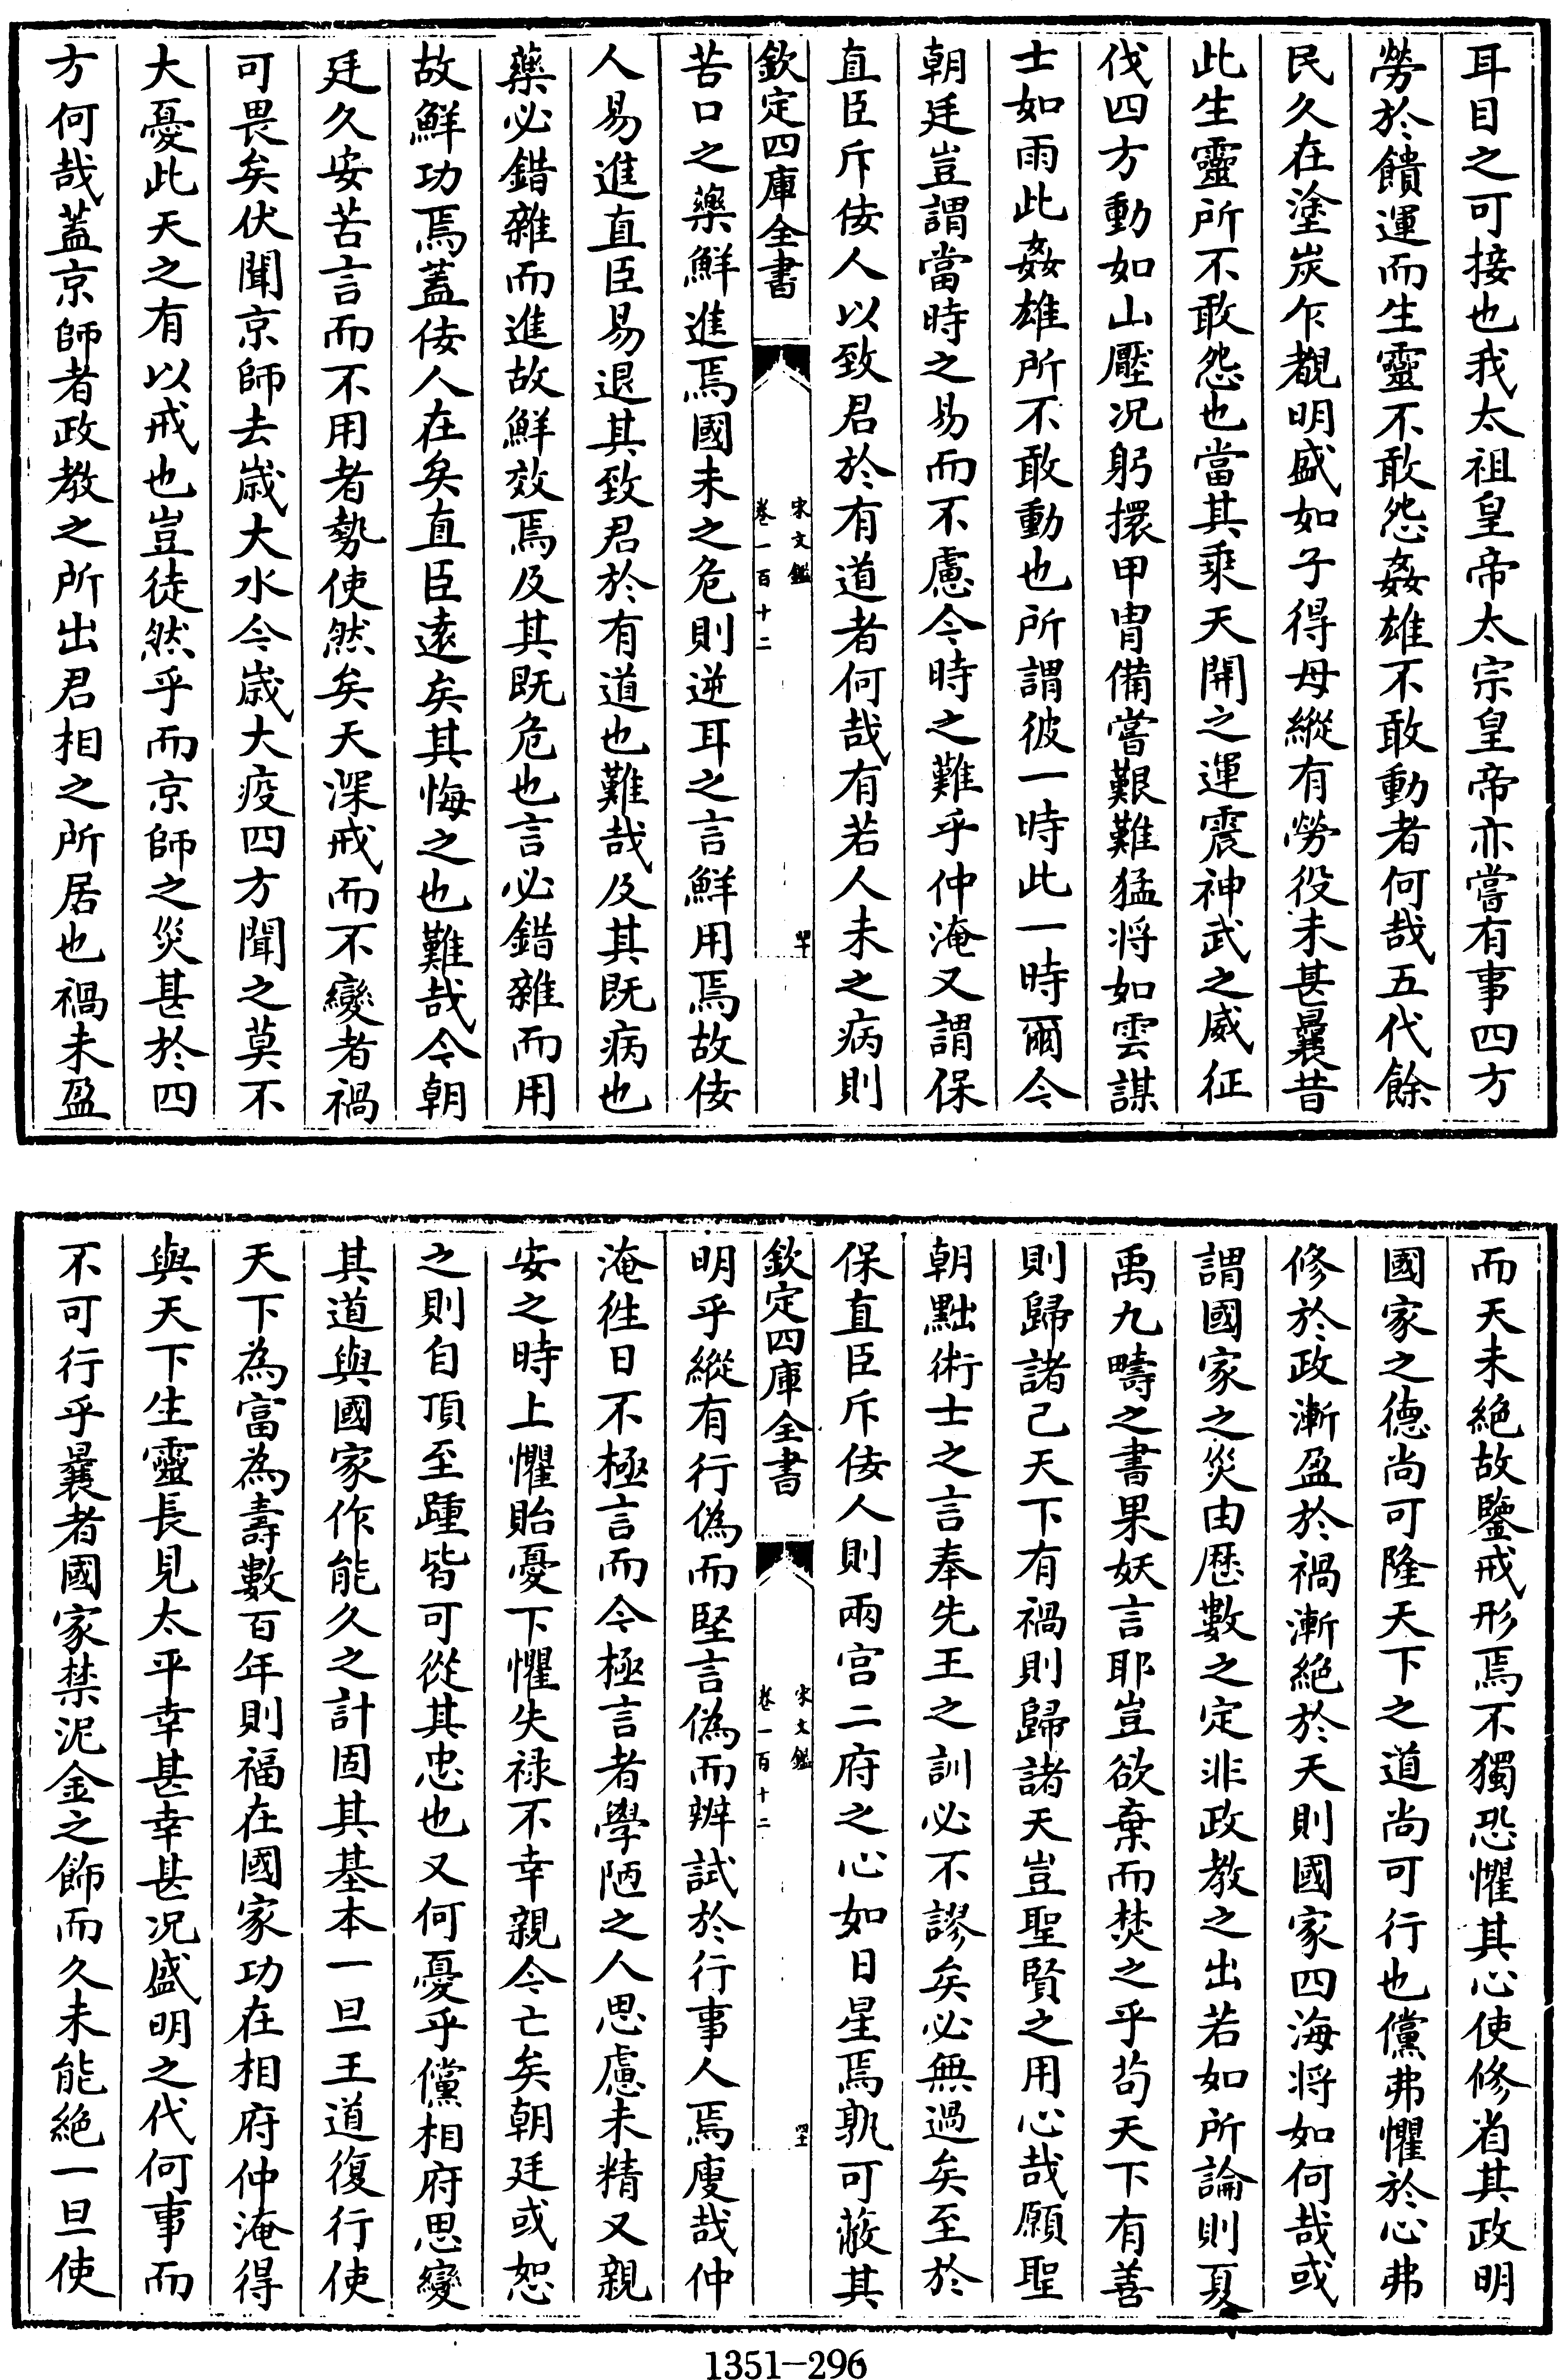 耳目之可接也我太祖皇帝太宗皇帝亦嘗有事四方
勞於饋運而生靈不敢怨姦雄不敢動者何哉五代餘
民久在塗炭乍覩明盛如子得母縱有勞役未甚曩昔
此生靈所不敢怨也當其乘天開之運震神武之威征
伐四方動如山壓况躬擐甲胄備嘗艱難猛将如雲謀
士如雨此姦雄所不敢動也所謂彼一時此一時爾今
朝廷豈謂當時之易而不慮今時之難乎仲淹又謂保
直臣斥佞人以致君於有道者何哉有若人未之病則
欽定四庫全書
宋文鑑
卷一百十二
苦口之藥鮮進焉國未之危則逆耳之言鮮用焉故佞
人易進直臣易退其致君於有道也難哉及其既病也
藥必錯雜而進故鮮效焉及其既危也言必錯雜而用
故鮮功焉蓋佞人在矣直臣逺矣其悔之也難哉今朝
廷久安苦言而不用者勢使然矣天深戒而不變者禍
可畏矣伏聞京師去嵗大水今嵗大疫四方聞之莫不
大憂此天之有以戒也豈徒然乎而京師之災甚於四
方何哉蓋京師者政教之所出君相之所居也禍未盈
而天未絶故鑒戒形焉不獨恐懼其心使修省其政明
國家之德尚可隆天下之道尚可行也儻弗懼於心弗
修於政漸盈於禍漸絶於天則國家四海将如何哉或
謂國家之災由歴數之定非政教之出若如所論則夏
禹九疇之書果妖言耶豈欲棄而焚之乎茍天下有善
則歸諸己天下有禍則歸諸天豈聖賢之用心哉願聖
朝黜術士之言奉先王之訓必不謬矣必無過矣至於
保直臣斥佞人則兩宫二府之心如日星焉孰可蔽其
欽定四庫全書
宋文鑑
卷一百十二
明乎縱有行偽而堅言偽而辨試於行事人焉廋哉仲
淹徃日不極言而今極言者學陋之人思慮未精又親
安之時上懼貽憂下懼失禄不幸親今亡矣朝廷或恕
之則自頂至踵皆可從其忠也又何憂乎儻相府思變
其道與國家作能久之計固其基本一旦王道復行使
天下為富為壽數百年則福在國家功在相府仲淹得
與天下生靈長見太平幸甚幸甚况盛明之代何事而
不可行乎曩者國家禁泥金之飾而久未能絶一旦使
1351-296